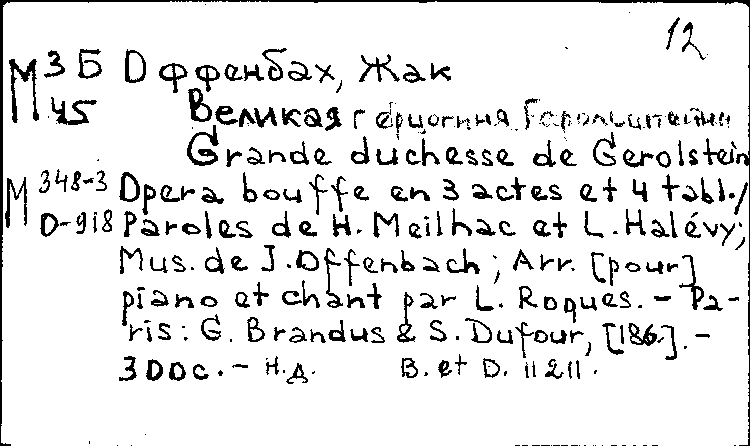 12
М 3 Б Оффенбах, Жак
45 Великая герцогиня Герольштейна
Grande duchesse de Gerolstein
М 348-3 Opera bouffe en 3 actes et 4 tabl./
О-918 Paroles de H. Meilhac et L. Halévy;
Mus. de J. Offenbach; Arr. [pour]
piano et chant par L. Roques. – Pa-
ris: G. Brandus & S. Dufour, [186.]. –
300 с. – Н.д. B. et D. 11211.